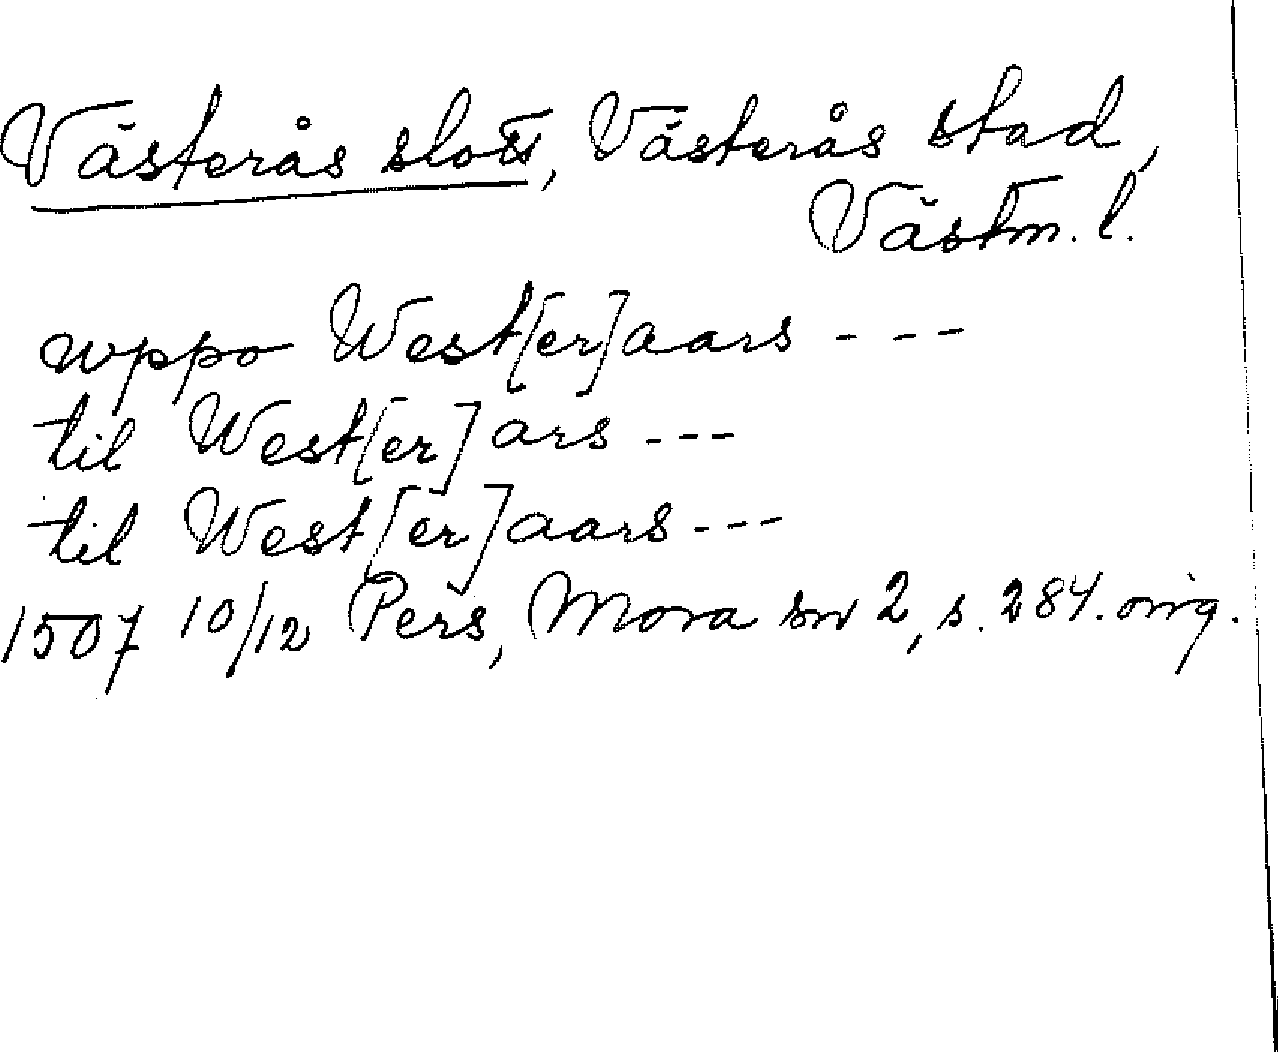 Västerås slott, Västerås stad,
Västm. l.
wppo West[er]aars - - -
til West[er]ars - - -
til West[er]aars - - -
1507 10/12 Pers, Mora sn 2, s. 284. orig.